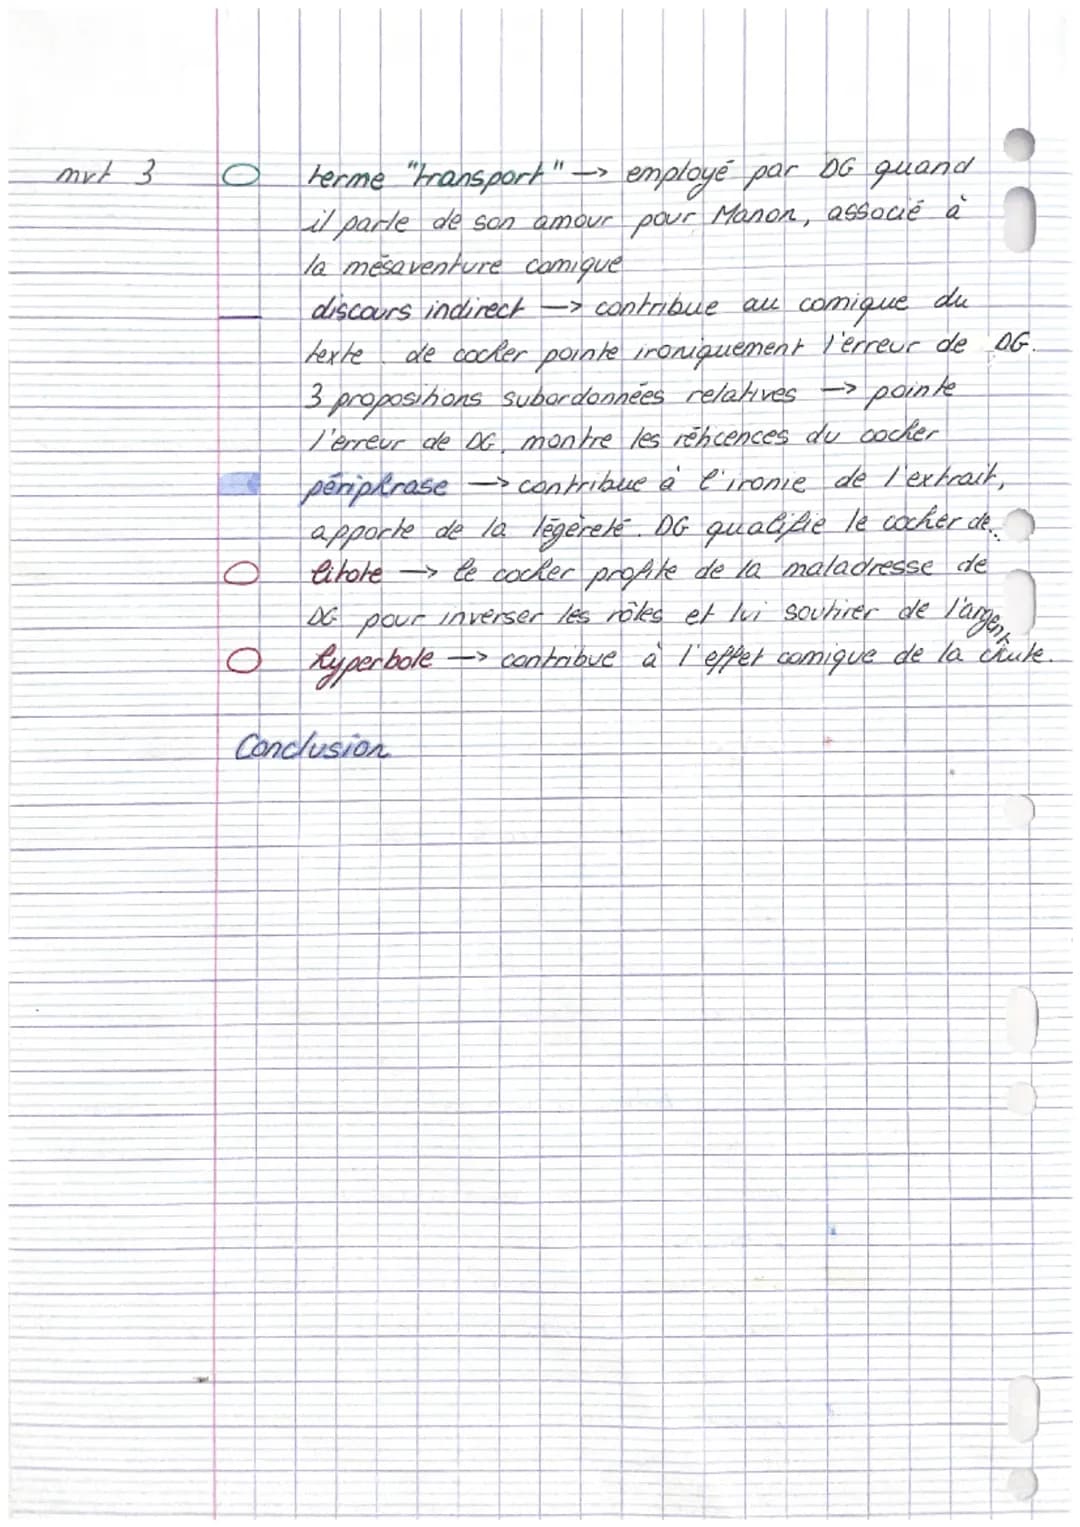 mvt 3 terme "transport" → employé par DG quand
il parle de son amour pour Manon, associé à
la mésaventure comique
discours indirect → contribue au comique du
texte. de cocher pointe ironiquement l'erreur de DG.
3 propositions subordonnées relatives → pointe
l'erreur de DG, montre les réticences du cocher
périphrase → contribue à l'ironie de l'extrait,
apporte de la légèreté. DG qualifie le cocher de...
litote → le cocher profite de la maladresse de
DG pour inverser les rôles et lui soutirer de l'argent
hyperbole → contribue à l'effet comique de la chute.
Conclusion